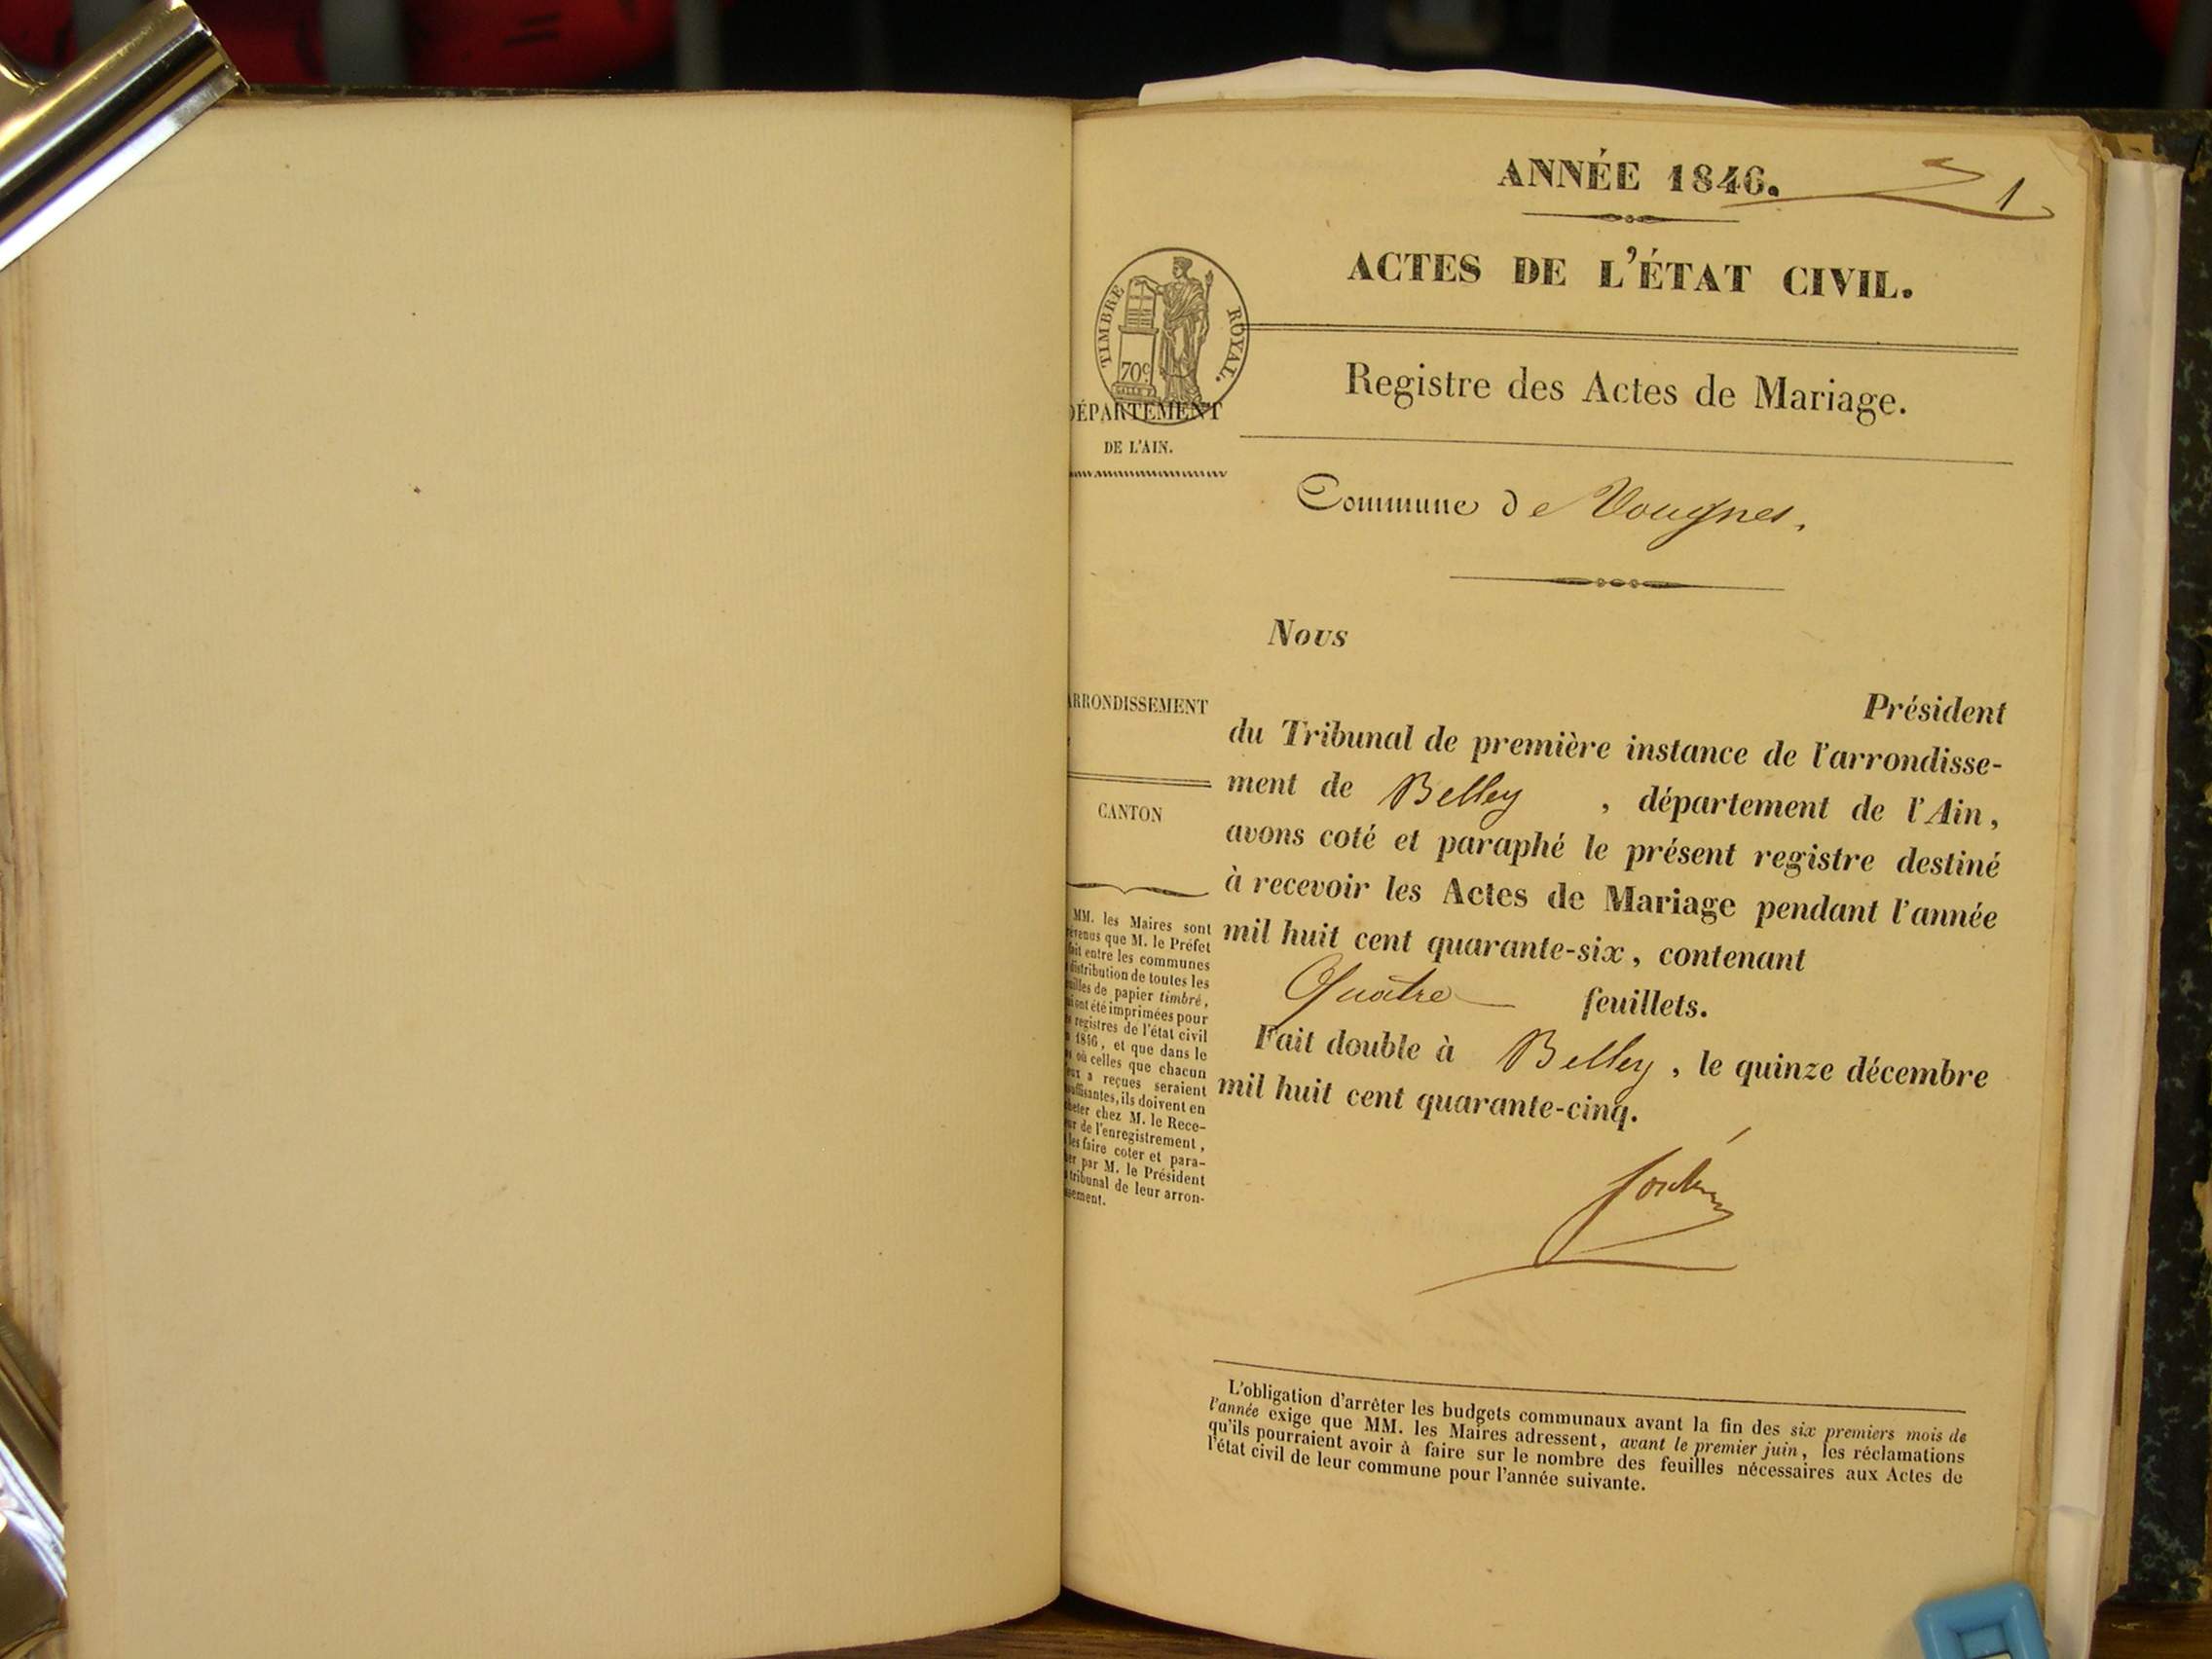 ANNÉE 1846.
1
ACTES DE L'ÉTAT CIVIL.
TIMBRE ROYAL.
70c
Registre des Actes de Mariage.
DÉPARTEMENT
DE L'AIN.
Commune de Vougnes.
Nous
Président
du Tribunal de première instance de l'arrondisse-
ment de Belley , département de l'Ain,
avons coté et paraphé le présent registre destiné
à recevoir les Actes de Mariage pendant l'année
mil huit cent quarante-six, contenant
Quatre feuillets.
Fait double à Belley, le quinze décembre
mil huit cent quarante-cinq.
ARRONDISSEMENT
CANTON
MM. les Maires sont
que M. le Préfet
fait entre les communes
distribution de toutes les
de papier timbré,
ont été imprimées pour
registres de l'état civil
1846, et que dans le
où celles que chacun
a reçues seraient
ils doivent en
chez M. le Rece-
de l'enregistrement,
les faire coter et para-
par M. le Président
tribunal de leur arron-
L'obligation d'arrêter les budgets communaux avant la fin des six premiers mois de
l'année exige que MM. les Maires adressent, avant le premier juin, les réclamations
qu'ils pourraient avoir à faire sur le nombre des feuilles nécessaires aux Actes de
l'état civil de leur commune pour l'année suivante.